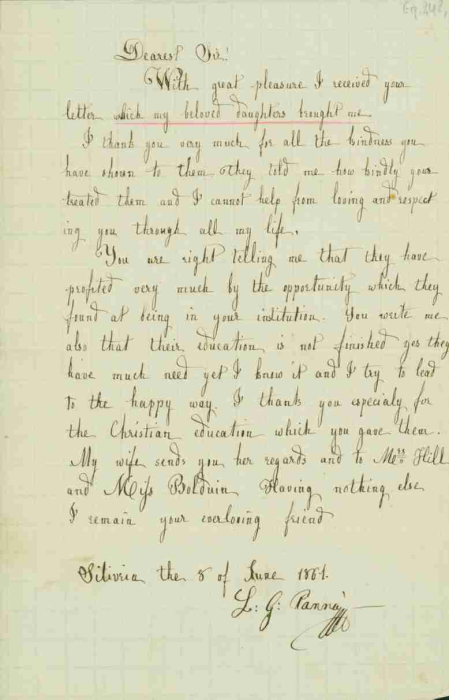 En. 242,
Dearest Sir!
With great pleasure I received your
letter which my beloved daughters brought me
I thank you very much for all the kindness you
have shown to them they told me how kindly your
treated them and I cannot help from loving and respect
ing you through all my life.
You are right telling me that they have
profited very much by the opportunity which they
found at being in your institution. You write me
also that their education is not finished yes they
have much need yet I know it and I try to lead
to the happy way. I thank you especialy for
the Christian education which you gave them.
My wife sends you her regards and to Mrs Hill
and Miss Baldwin Having nothing else
I remain your everloving friend
the 8 of June
L: G: Panna